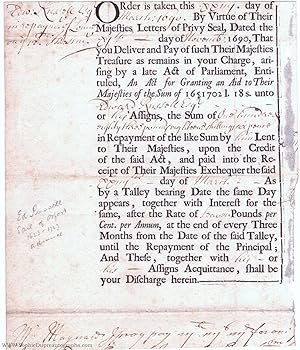 Order is taken this
day of
March 1690. By Virtue of Their
Majesties Letters of Privy Seal, Dated the
day of 1690, That
you Deliver and Pay of such Their Majesties
Treasure as remains in your Charge, ari-
sing by a late Act of Parliament, Enti-
tuled, An Act for Granting an Aid to Their
Majesties of the Sum of 1651702 l. 18 s. unto
Edward Russell Esq
or his Assigns, the Sum of
in Repayment of the like Sum by him Lent
to Their Majesties, upon the Credit
of the said Act, and paid into the Re-
ceipt of Their Majesties Exchequer the said
day of March As
by a Talley bearing Date the same Day
appears, together with Interest for the
same, after the Rate of Pounds per
Cent. per Annum, at the end of every Three
Months from the Date of the said Talley,
until the Repayment of the Principal;
And These, together with his or
his Assigns Acquittance, shall be
your Discharge herein.
Mr Maynard I pray pay
www.SophieDupreAutographs.com